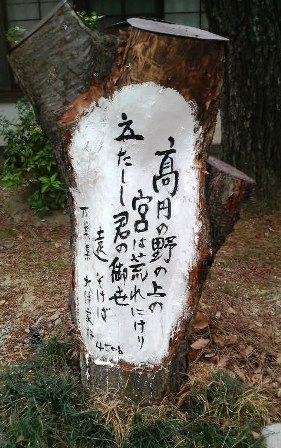 高円の野の上の
宮は荒れにけり
立たしし君の御世
遠そけば
万葉集 大伴家持
4506